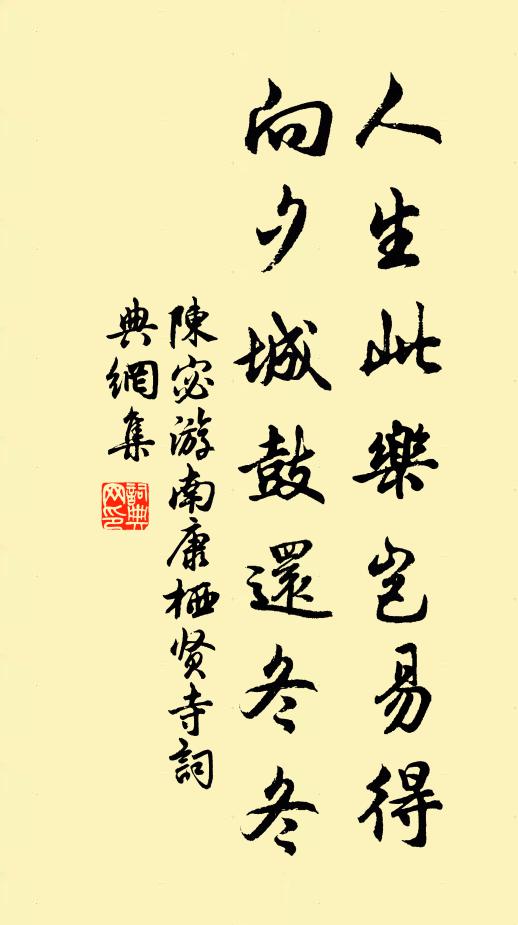 人生此樂豈易得
向夕城鼓還冬冬
陳宓游南康栖贤寺詞
典網集
詞典
网印